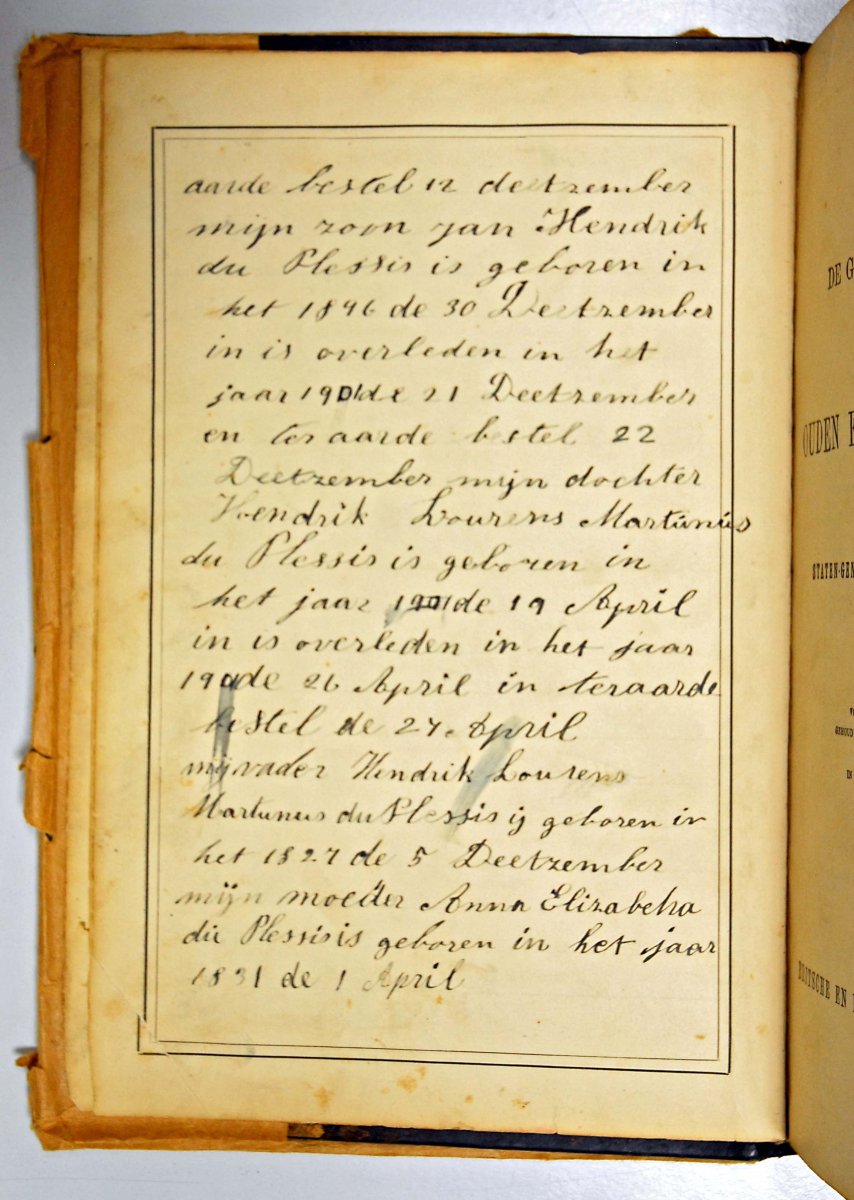 aarde bestel 12 deetzember
mijn zoon jan Hendrik
du Plessis is geboren in
het 1896 de 30 Deetzember
in is overleden in het
jaar 1901 de 21 Deetzember
en ter aarde bestel 22
Deetzember mijn dochter
Hendrik Lourens Martunus
du Plessis is geboren in
het jaar 1901 de 19 April
in is overleden in het jaar
de 26 April in teraarde
bestel de 27 April
mij vader Hendrik Lourens
Martunus du Plessis ij geboren in
het 1827 de 5 Deetzember
mijn moeder Anna Elizabeha
du Plessis is geboren in het jaar
1831 de 1 April
DE G
OUDEN
STATEN-GEN